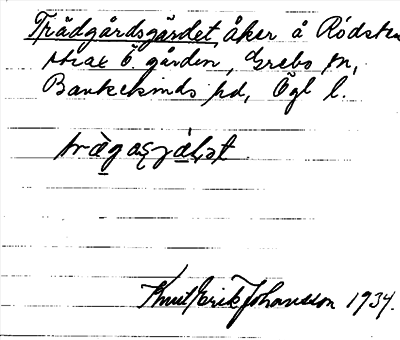 Trädgårdsgärdet, åker å Rödsten
strax Ö. gården, Grebo sn,
Bankekinds hd, Ögl l.
Knut Erik Johansson 1934.